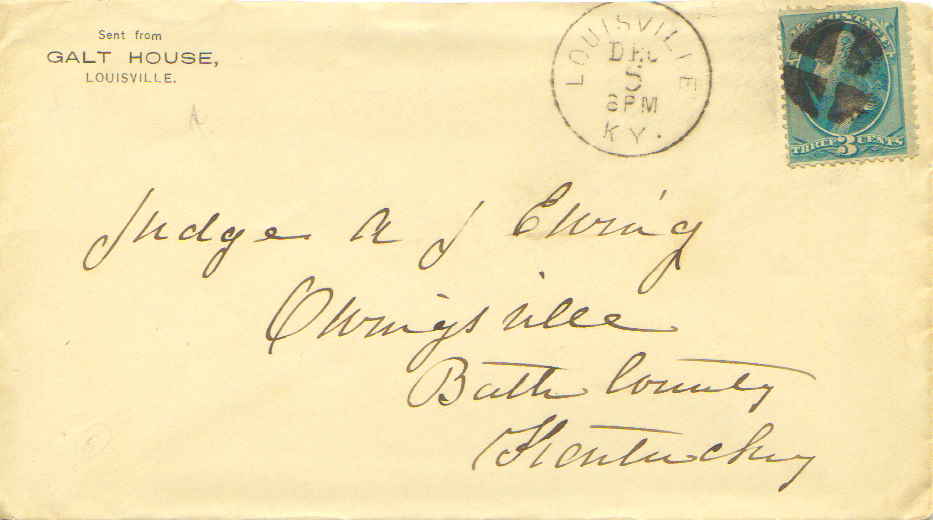 Sent from
GALT HOUSE,
LOUISVILLE.
LOUISVILLE
DEC
5
6 PM
KY.
POSTAGE
THREE 3 CENTS
Judge A J Ewing
Owingsville
Bath County
Kentucky